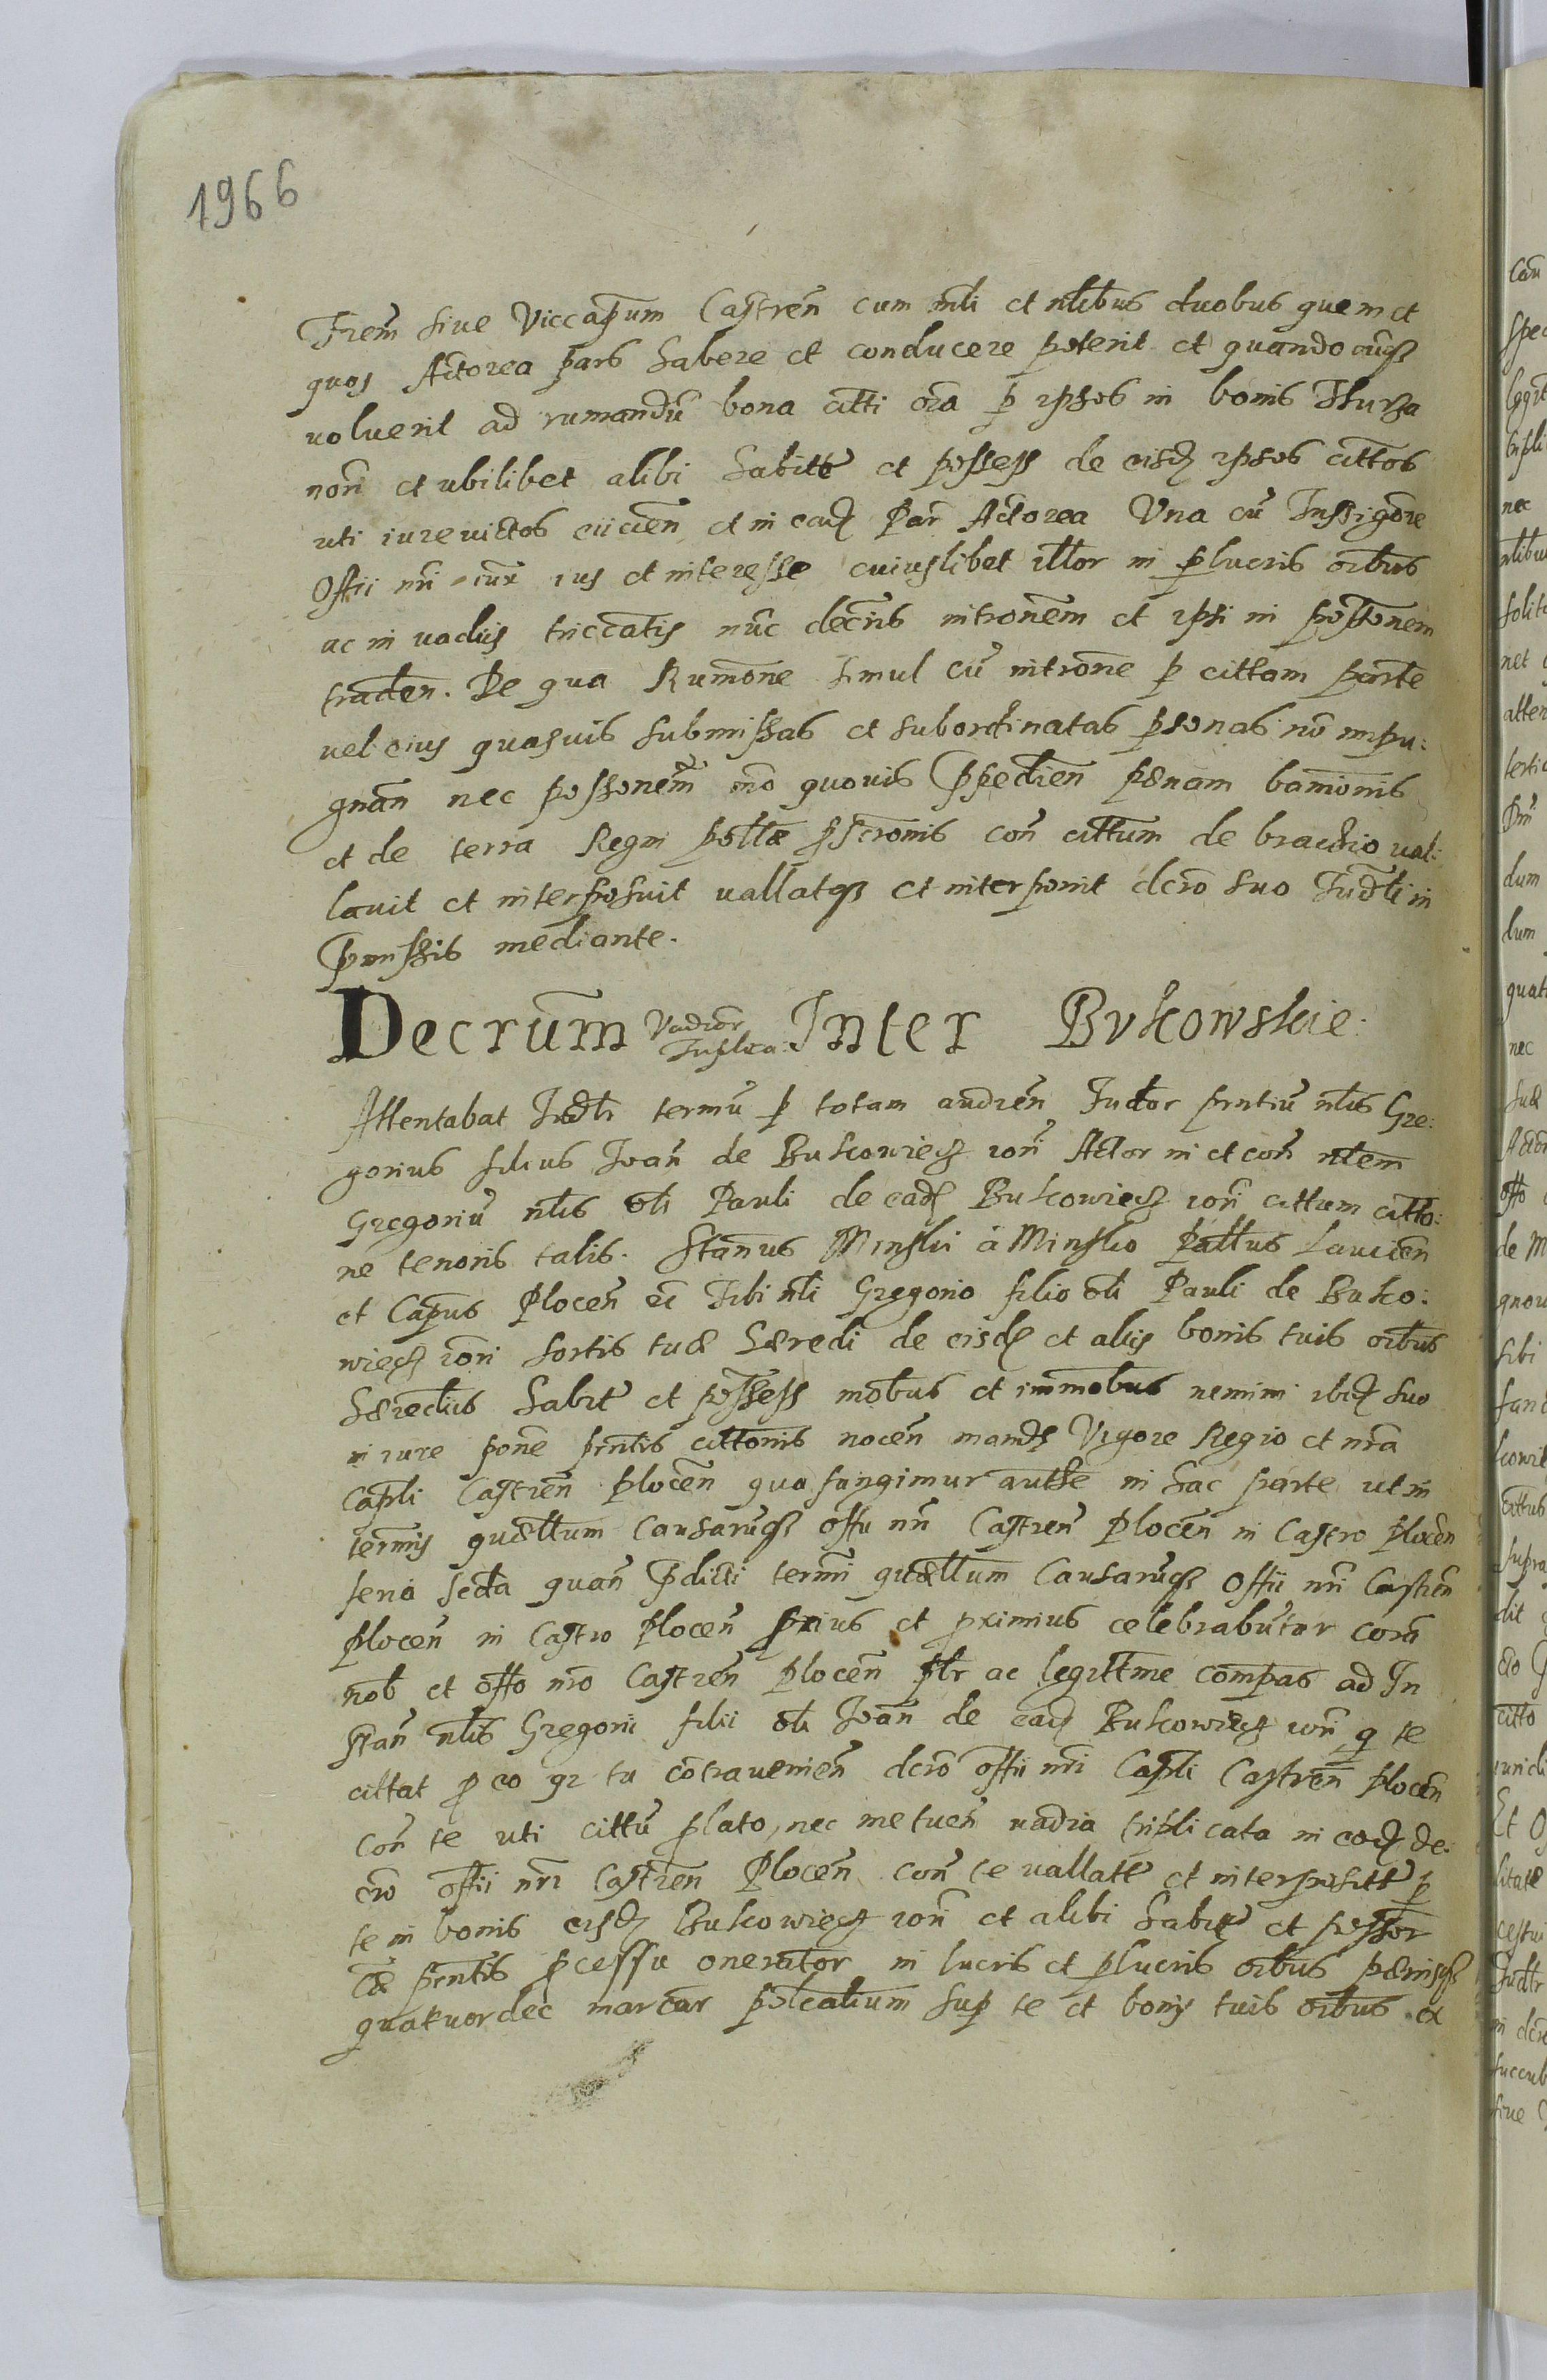 1966
Trem siue Viccapum Castren cum nli et nlibus duobus quem et
quos Actorea pars habere et conducere poterit et quandocunq
voluerit ad rumandu bona citti oia p ipsos in bonis
non et ubilibet alibi habitt et possess de eisd ipsos cittos
uti iure victos eiicien et in ead Par Actorea Una cu Instigore
Offii nri ius et interesse cuiuslibet illor in plucris oibus
ac in vadiis triccatis nuc decris intronem et ipsi in possonem
traden. De qua Rumone simul cu introne p cittam parte
vel eius quasuis submissas et subordinatas psonas no impu:
gnan nec possonem mo quouis ppedien pænam bannionis
et de terra Regni pollæ pscronis con cittum de brachio val:
lauit et interposuit vallatq et interponit dcro suo Judli in
pmissis mediante.
Decrum Vadior Triplica: Inter Bukowskie.
Attentabat Judlr termu p totam audien Judor pntiu nlis Gre:
gorius filius Joan de Bukowiecz ion Actor in et con nlem
Gregoriu nlis oli Pauli de ead Bukowiecz ion cittum citto:
ne tenoris talis. Stanus Minski à Minsko Pallus Lancicien
et Capus Plocen etc Tibi nli Gregorio filio oli Pauli de Buko:
wiecz ioni sortis tuæ Hæredi de eisd et aliis bonis tuis oibus
Hæreditus habit et possess mobus et immobus nemini ibid suo
in iure pone pntis cittonis nocen mands Vigore Regio et nra
Capli Castren Plocen qua fungimur authe in hac parte ut in
termis quællum Causaruq offii nri Castren Plocen in Castro Plocen
feria secda quan pdicti termi quællum Causaruq Offii nri Castren
Plocen in Castro Plocen prius et pximius celebrabutur cora
nob et offo nro Castren Plocen plr ac legittme compas ad In
stan nlis Gregorii filii oli Joan de ead Bukowiecz ion q te
cittat p eo qz tu cotravenien dcro offii nri Capli Castren Plocen
con te uti cittu plato, nec metuen vadia triplicata in eod de:
cro offii nri Castren Plocen con te vallatt et interpositt p
te in bonis eisd Bukowiecz ion et alibi habit et possor
pntis pcessu onerator in lucris et plucris oibus pænisq
quatuordec marcar polcalium sup te et bonis tuis oibus ex